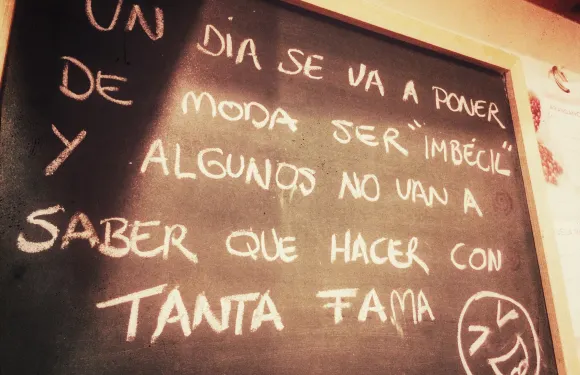 UN DIA SE VA A PONER
DE MODA SER "IMBÉCIL"
Y ALGUNOS NO VAN A
SABER QUE HACER CON
TANTA FAMA